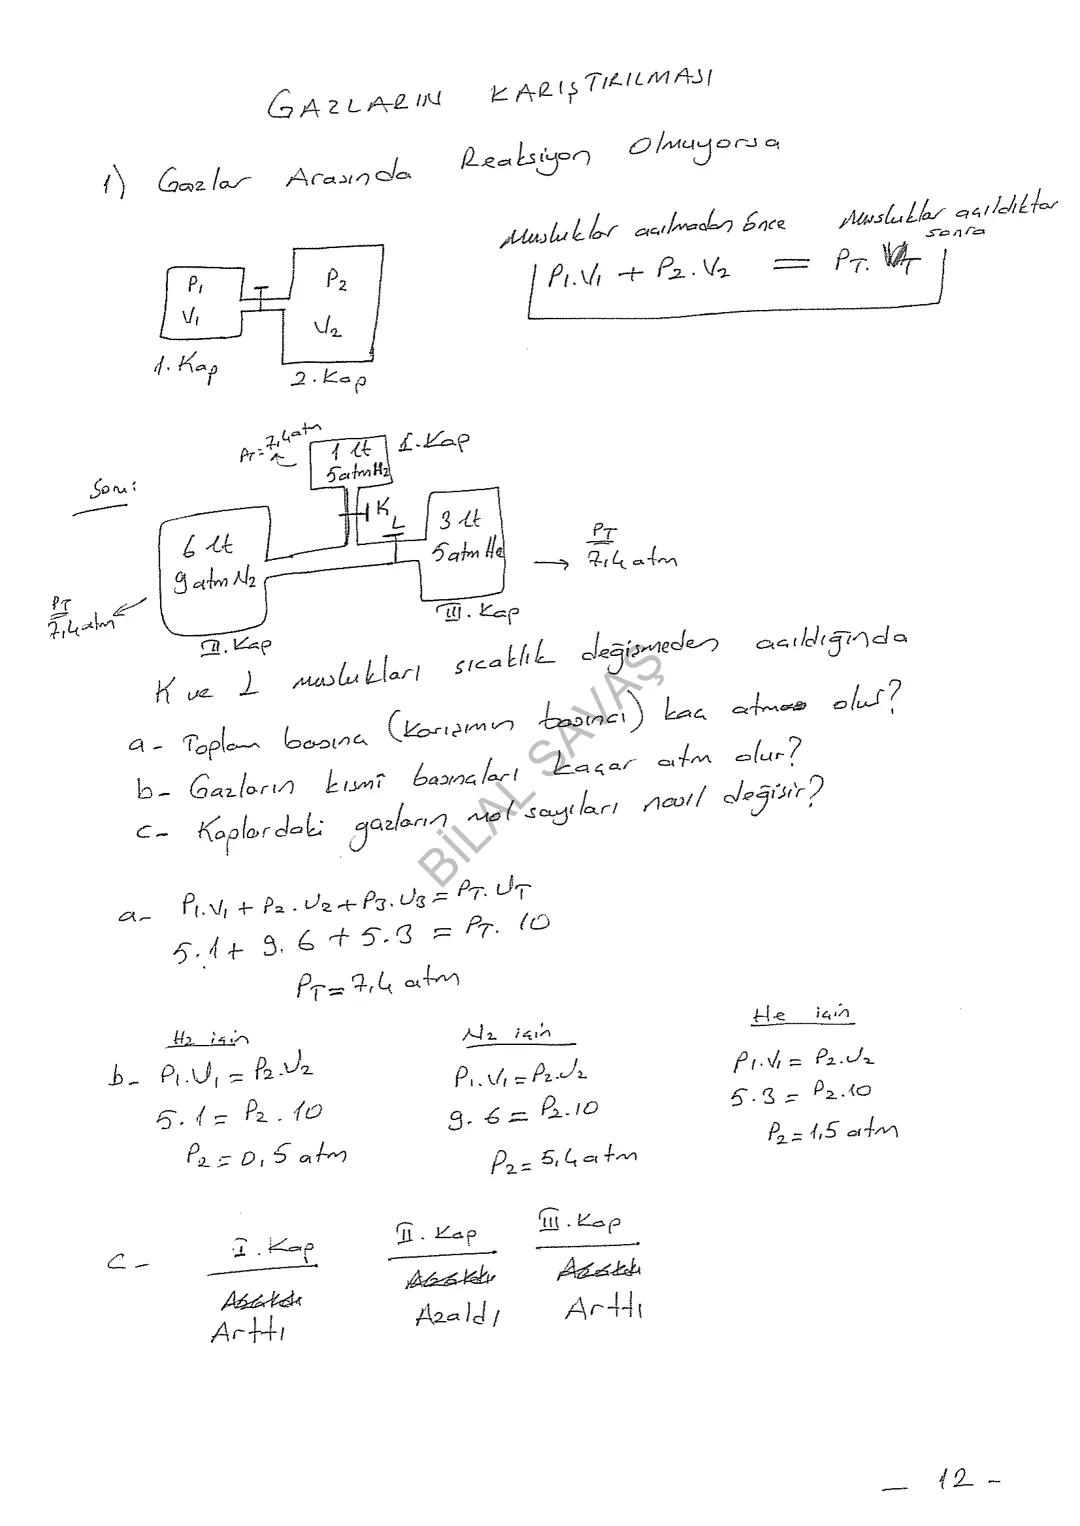 GAZLARIN KARIŞTIRILMASI
1) Gazlar Arasında Reaksiyon Olmuyorsa
Musluklar açılmadan önce Musluklar açıldıktan sonra
P1.V1 + P2.V2 = PT.VT
P1 V1
P2 V2
1. Kap
2. Kap
Soru:
PT = 7,4 atm
1 lt
5 atm H2
I. Kap
K
L
6 lt
9 atm N2
II. Kap
3 lt
5 atm He
III. Kap
PT
7,4 atm
PT
7,4 atm
K ve L muslukları sıcaklık değişmeden açıldığında
a- Toplam basınç (karışımın basıncı) kaç atm olur?
b- Gazların kısmî basınçları kaçar atm olur?
c- Kaplardaki gazların mol sayıları nasıl değişir?
BİLAL SAVAŞ
a- P1.V1 + P2.V2 + P3.V3 = PT.VT
5.1 + 9.6 + 5.3 = PT.10
PT = 7,4 atm
H2 için N2 için He için
b- P1.V1 = P2.V2 P1.V1 = P2.V2 P1.V1 = P2.V2
5.1 = P2.10 9.6 = P2.10 5.3 = P2.10
P2 = 0,5 atm P2 = 5,4 atm P2 = 1,5 atm
c- I. Kap II. Kap III. Kap
Arttı Azaldı Arttı
- 12 -